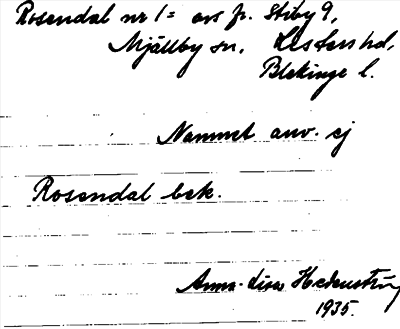 Rosendal nr 1 = avs fr. Stiby 9,
Mjällby sn, Listers hd,
Blekinge l.
Namnet anv. ej
Rosendal bek.
Anna-Lisa Hedenström
1935.